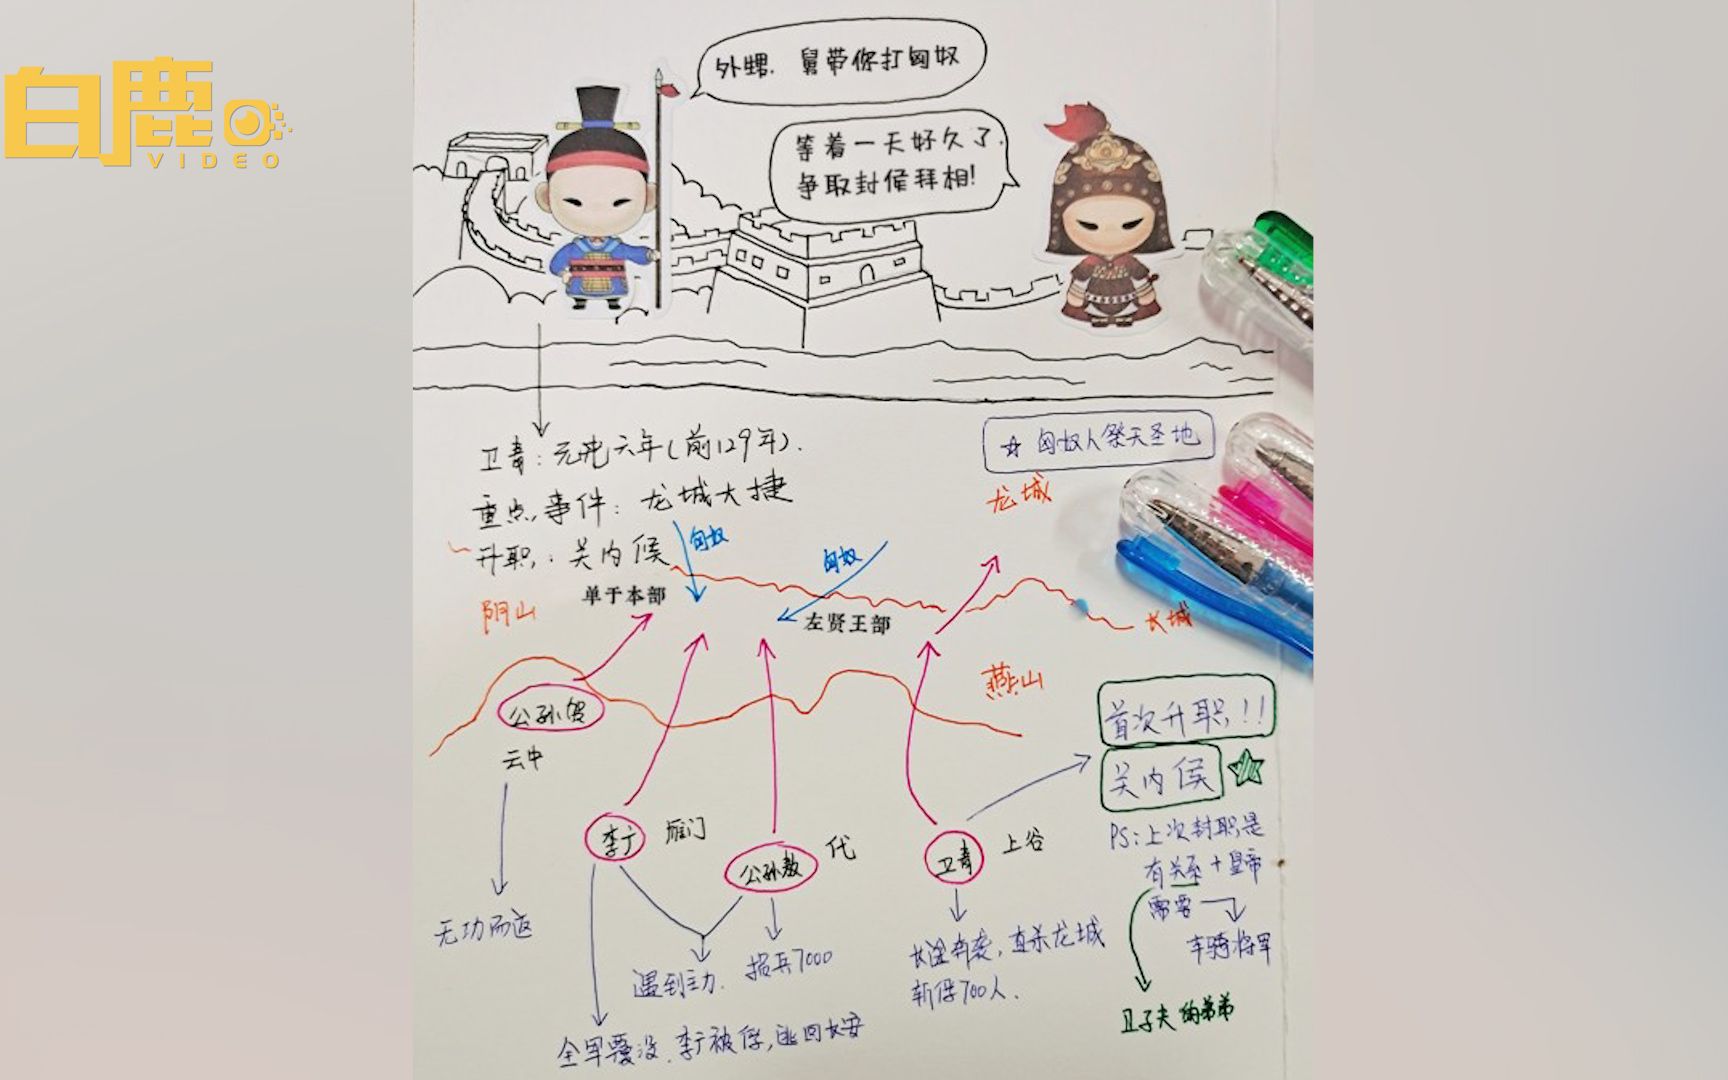 白鹿
VIDEO
外甥，舅带你打匈奴
等着一天好久了，
争取封侯拜相！
卫青：元光六年(前129年).
重点事件：龙城大捷
升职：关内侯
☆ 匈奴人祭天圣地
龙城
匈奴
匈奴
单于本部
左贤王部
阴山
长城
燕山
公孙贺
云中
李广
雁门
公孙敖
代
卫青
上谷
首次升职！！
关内侯
PS：上次封职是
有关系+皇帝
需要
车骑将军
卫子夫的弟弟
无功而返
遇到主力.
损兵7000
长途奔袭，直杀龙城
斩俘700人.
全军覆没，李广被俘，逃回长安